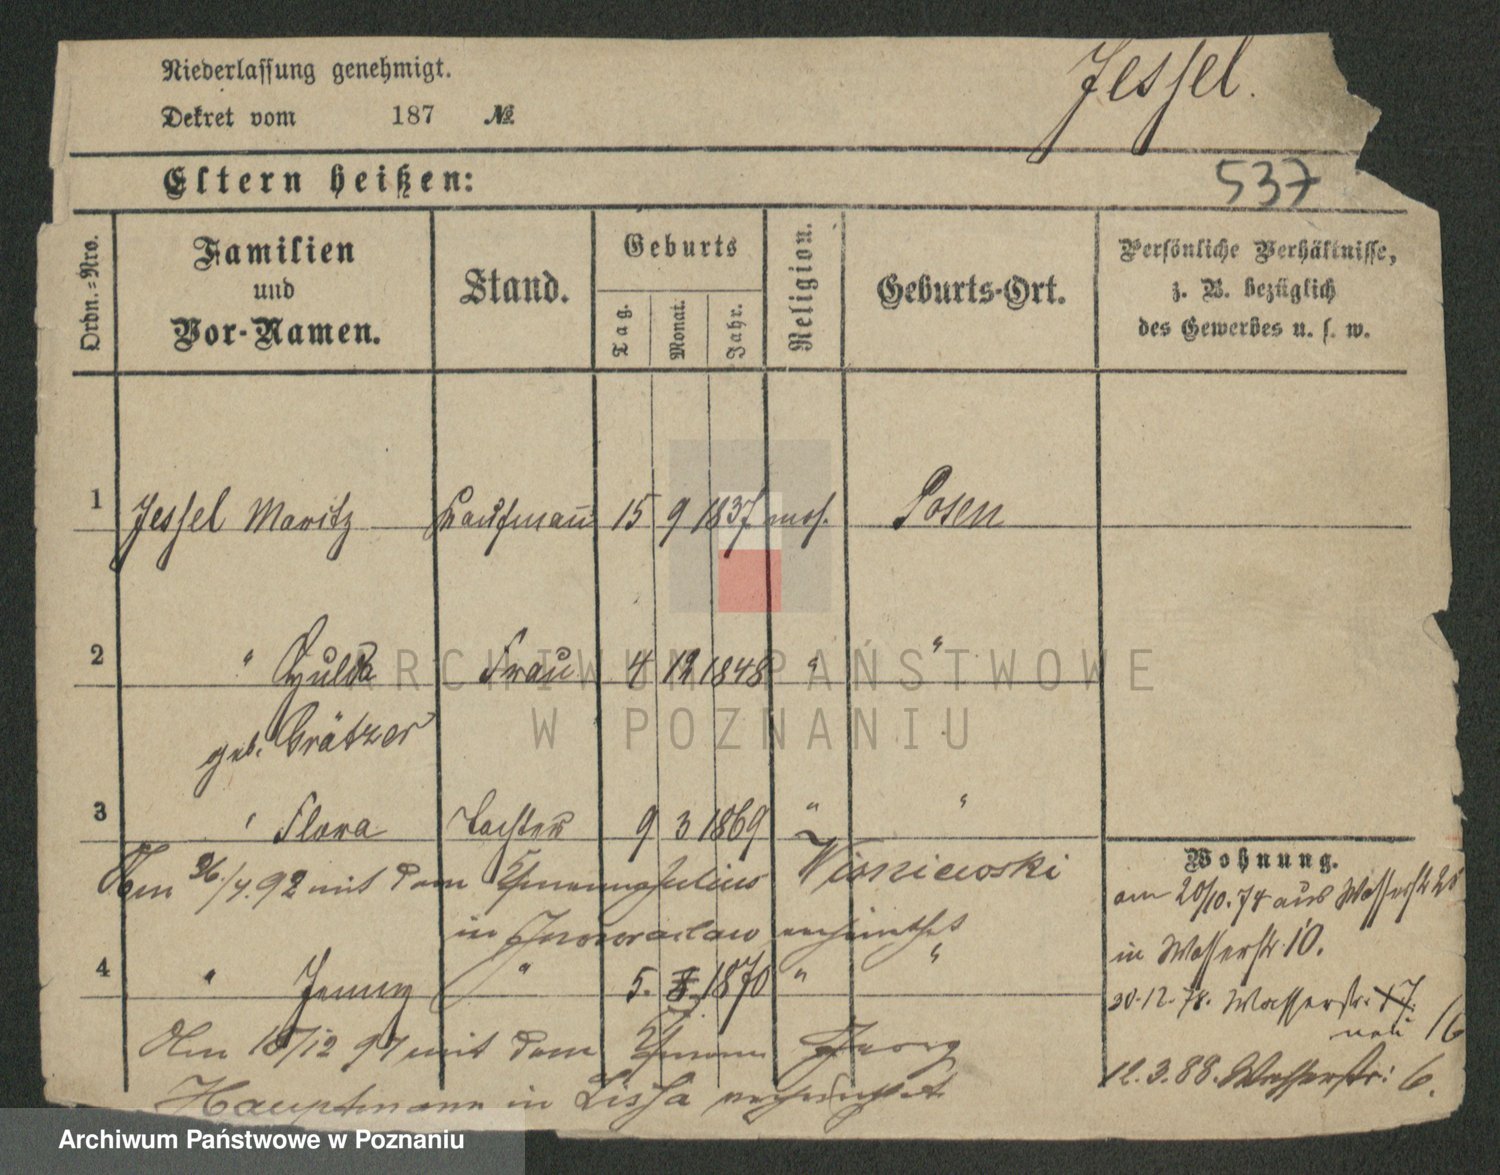 Niederlassung genehmigt.
Jessel.
Dekret vom 187 №
Eltern heißen:
537
Ordn.=Nro.
Familien
und
Vor-Namen.
Stand.
Geburts
Tag.
Monat.
Jahr.
Religion.
Geburts-Ort.
Persönliche Verhältnisse,
z. B. bezüglich
des Gewerbes u. s. w.
1 Jessel Moritz Kaufmann 15 9 1837 mos. Posen
2 " Hulda Frau 4 12 1848 " "
geb. Grätzer
3 " Flora Tochter 9 3 1869 " "
Am 26/4.92 mit dem Julius Wisniewski
in Inowraclaw verheirathet
4 " Jenny " 5. 1870 " "
Am 18/12 97 mit dem Georg
Hauptmann in Lissa verheirathet
Wohnung.
am 20/10.74 aus Wasserstr 25
in Wasserstr. 10.
30.12.78. Wasserstr. 17.
neu 16
12.3.88. Wasserstr: 6.
ARCHIWUM PAŃSTWOWE
W POZNANIU
Archiwum Państwowe w Poznaniu